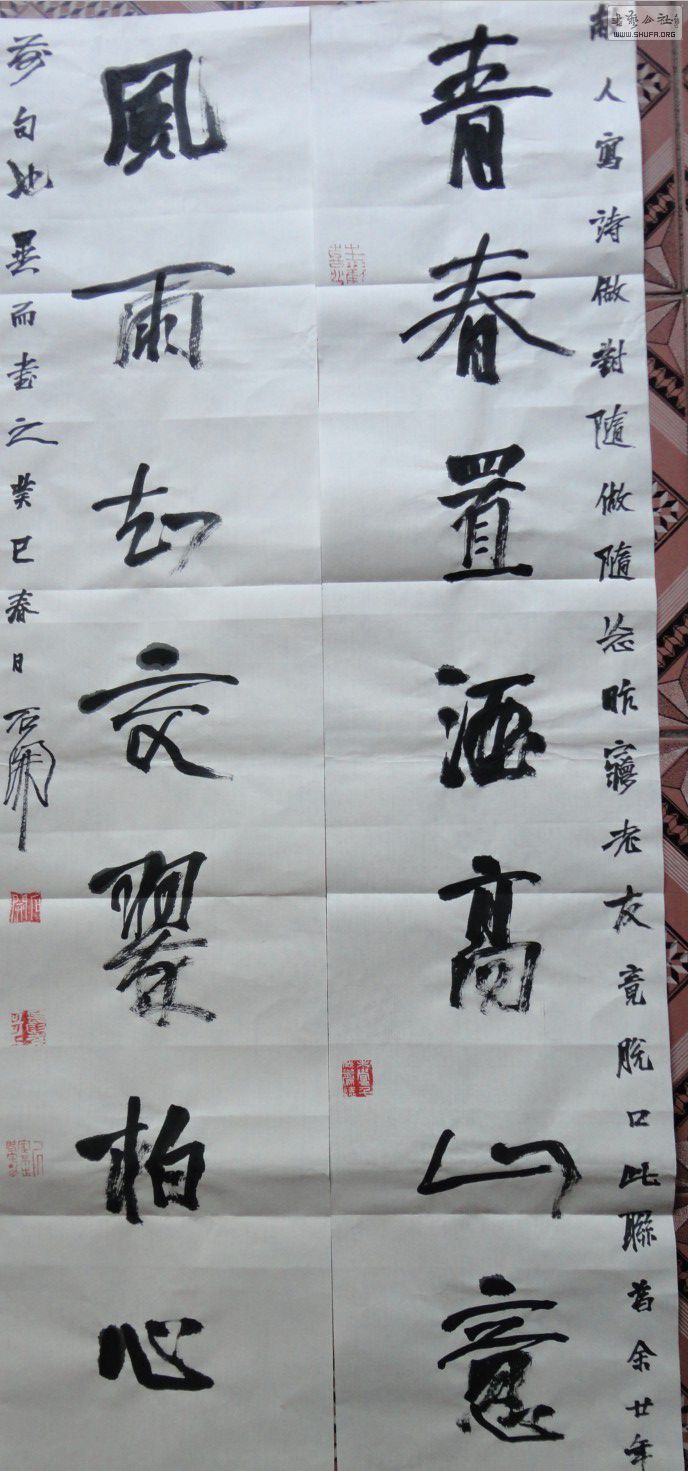 人寫詩做對隨做隨忘昨寢老友竟脫口此聯蓋余廿年
青春置酒高山意
風雨交翠柏心
前句也異而書之癸巳春日石開
WWW.SHUFA.ORG